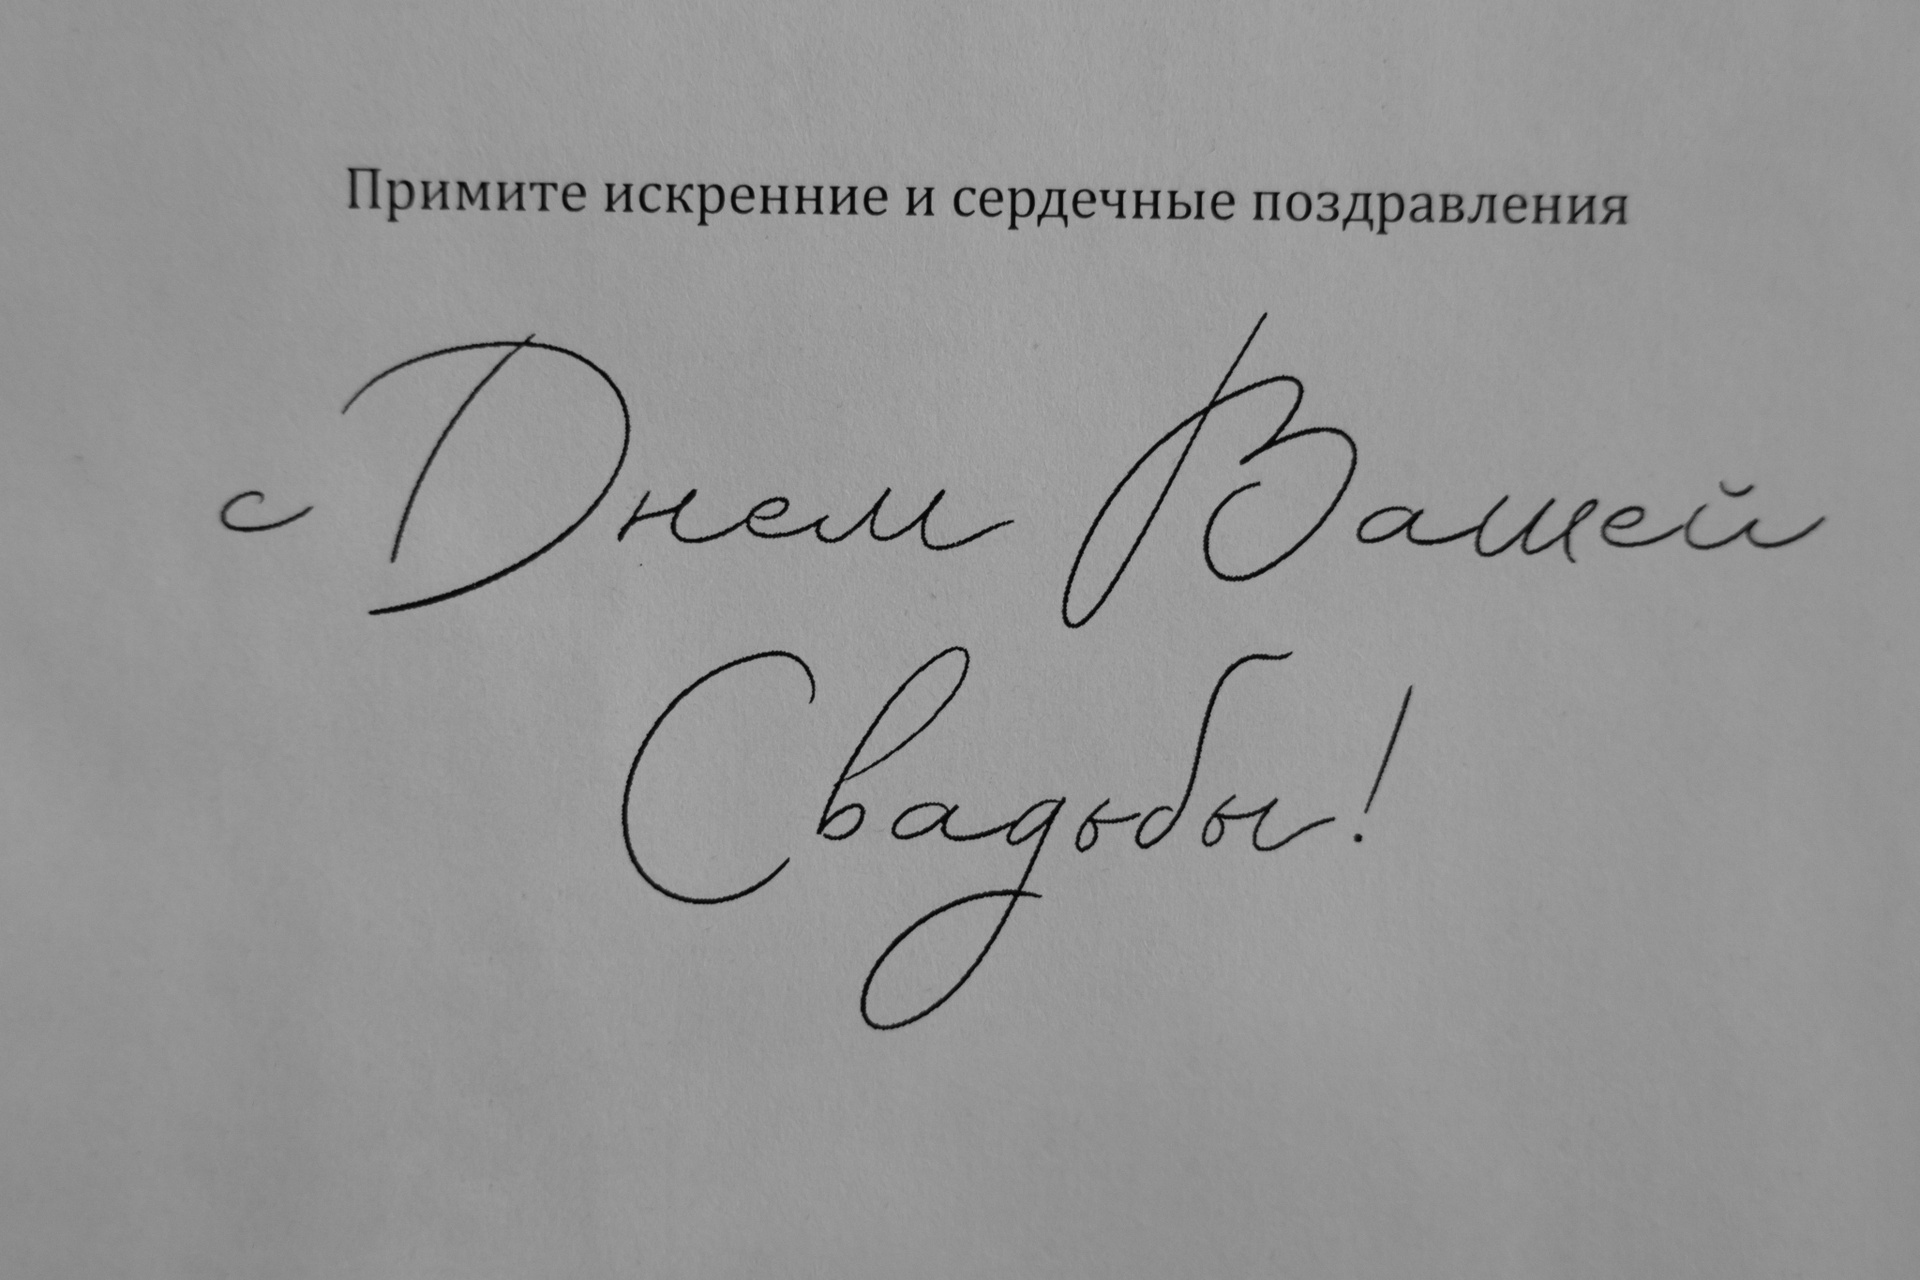 Примите искренние и сердечные поздравления
с Днем Вашей
Свадьбы!